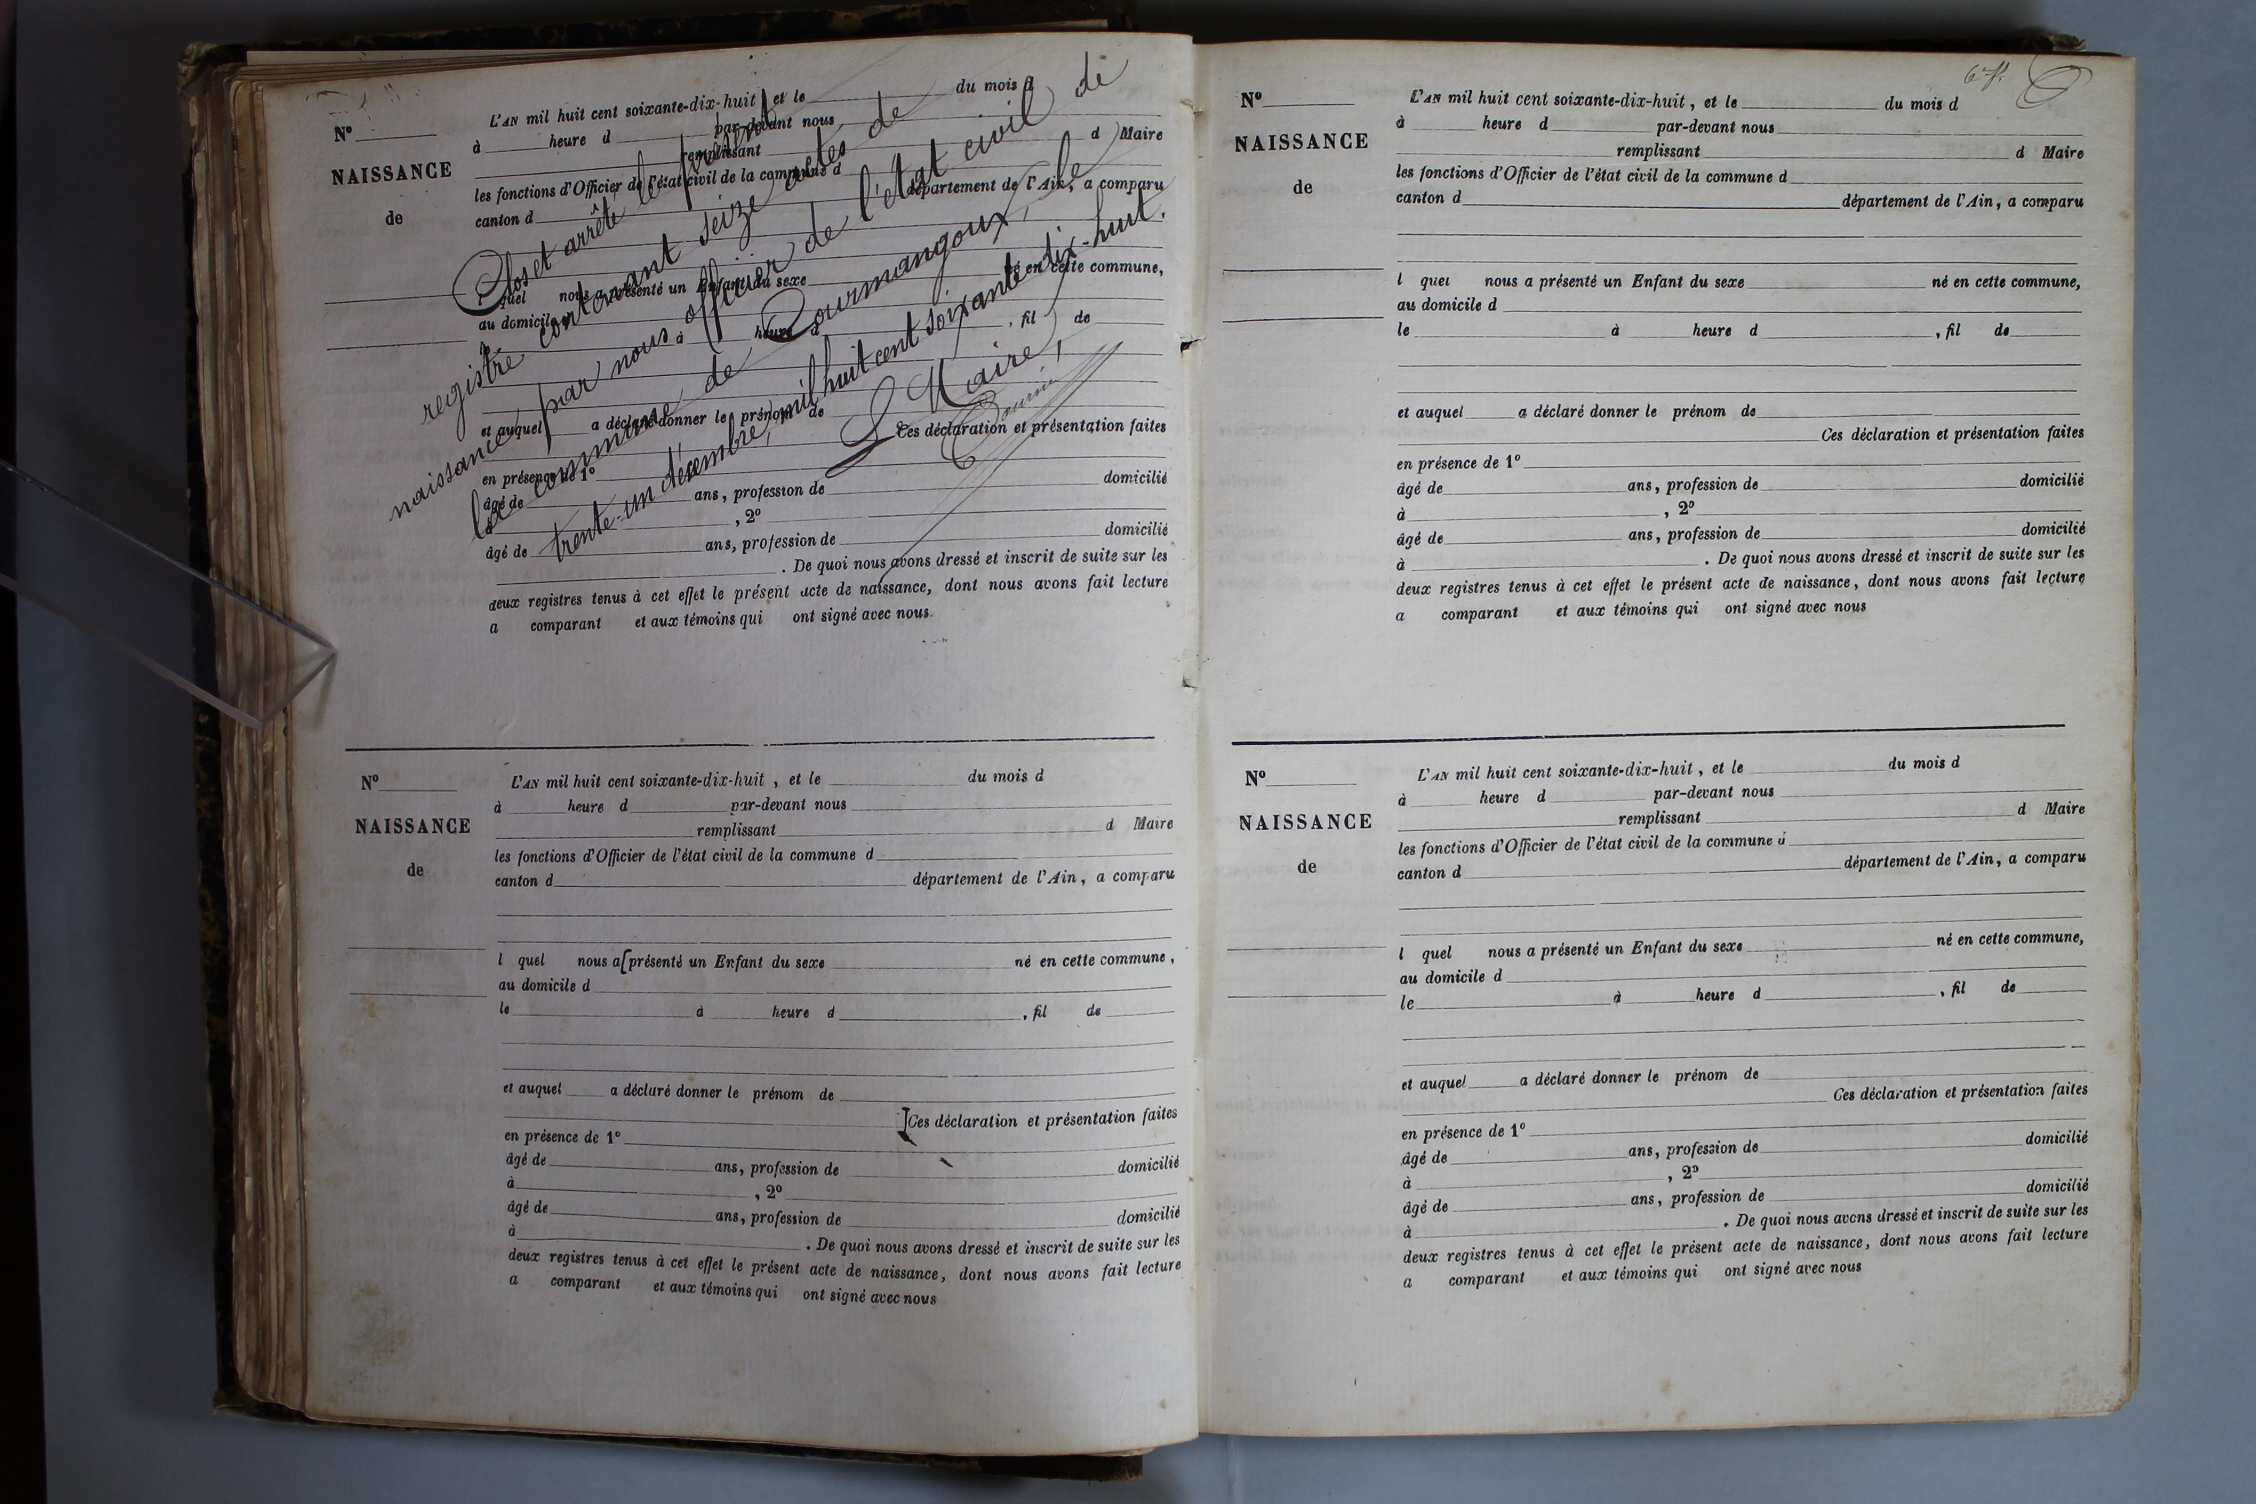 N°
NAISSANCE
de
L'AN mil huit cent soixante-dix-huit, et le du mois d
à heure d par-devant nous
remplissant d Maire
les fonctions d'Officier de l'état civil de la commune d
canton d département de l'Ain, a comparu
l quel nous a présenté un Enfant du sexe né en cette commune,
au domicile d
le à heure d , fil de
et auquel a déclaré donner le prénom de
Ces déclaration et présentation faites
en présence de 1°
âgé de ans, profession de domicilié
à , 2°
âgé de ans, profession de domicilié
. De quoi nous avons dressé et inscrit de suite sur les
deux registres tenus à cet effet le présent acte de naissance, dont nous avons fait lecture
a comparant et aux témoins qui ont signé avec nous.
Clos et arrêté le présent
registre contenant seize actes de
naissance, par nous officier de l'état civil de
la commune de Courmangoux, le
trente-un décembre, mil huit cent soixante-dix-huit.
Le Maire,
N°
NAISSANCE
de
L'AN mil huit cent soixante-dix-huit, et le du mois d
à heure d par-devant nous
remplissant d Maire
les fonctions d'Officier de l'état civil de la commune d
canton d département de l'Ain, a comparu
l quel nous a présenté un Enfant du sexe né en cette commune,
au domicile d
le à heure d , fil de
et auquel a déclaré donner le prénom de
Ces déclaration et présentation faites
en présence de 1°
âgé de ans, profession de domicilié
à , 2°
âgé de ans, profession de domicilié
à . De quoi nous avons dressé et inscrit de suite sur les
deux registres tenus à cet effet le présent acte de naissance, dont nous avons fait lecture
a comparant et aux témoins qui ont signé avec nous
N°
NAISSANCE
de
L'AN mil huit cent soixante-dix-huit, et le du mois d
à heure d par-devant nous
remplissant d Maire
les fonctions d'Officier de l'état civil de la commune d
canton d département de l'Ain, a comparu
l quel nous a présenté un Enfant du sexe né en cette commune,
au domicile d
le à heure d , fil de
et auquel a déclaré donner le prénom de
Ces déclaration et présentation faites
en présence de 1°
âgé de ans, profession de domicilié
à , 2°
âgé de ans, profession de domicilié
à . De quoi nous avons dressé et inscrit de suite sur les
deux registres tenus à cet effet le présent acte de naissance, dont nous avons fait lecture
a comparant et aux témoins qui ont signé avec nous
N°
NAISSANCE
de
L'AN mil huit cent soixante-dix-huit, et le du mois d
à heure d par-devant nous
remplissant d Maire
les fonctions d'Officier de l'état civil de la commune d
canton d département de l'Ain, a comparu
l quel nous a présenté un Enfant du sexe né en cette commune,
au domicile d
le à heure d , fil de
et auquel a déclaré donner le prénom de
Ces déclaration et présentation faites
en présence de 1°
âgé de ans, profession de domicilié
à , 2°
âgé de ans, profession de domicilié
à . De quoi nous avons dressé et inscrit de suite sur les
deux registres tenus à cet effet le présent acte de naissance, dont nous avons fait lecture
a comparant et aux témoins qui ont signé avec nous